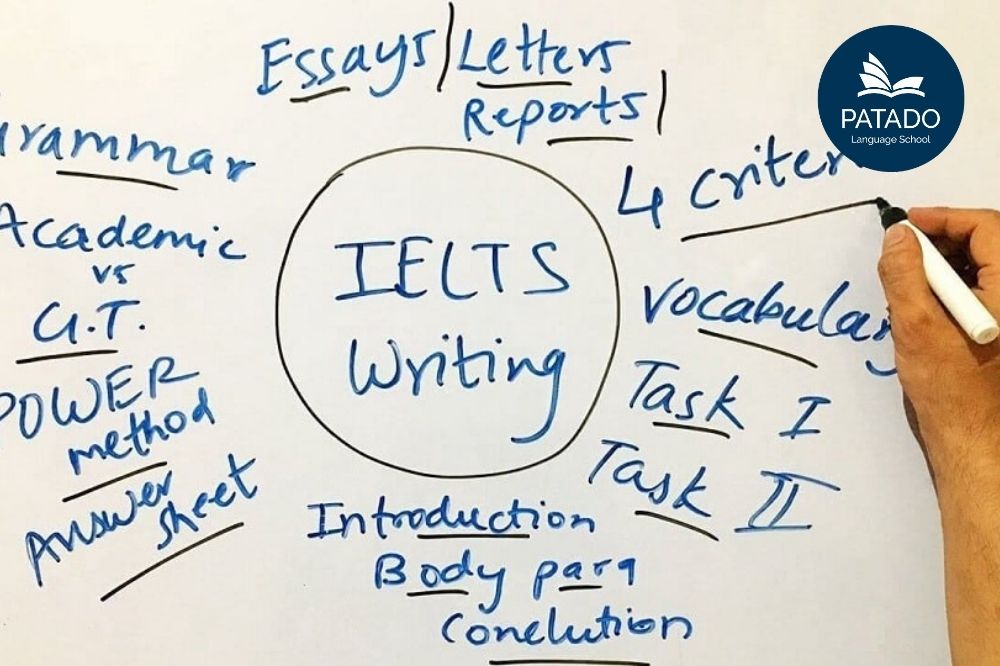 Essays/Letters
Reports/
PATADO
Language School
rammar
4 criter
Academic
vs
G.T.
IELTS
Writing
vocabulary
POWER
method
Task I
Task II
Answer
sheet
Introduction
Body para
Conclution